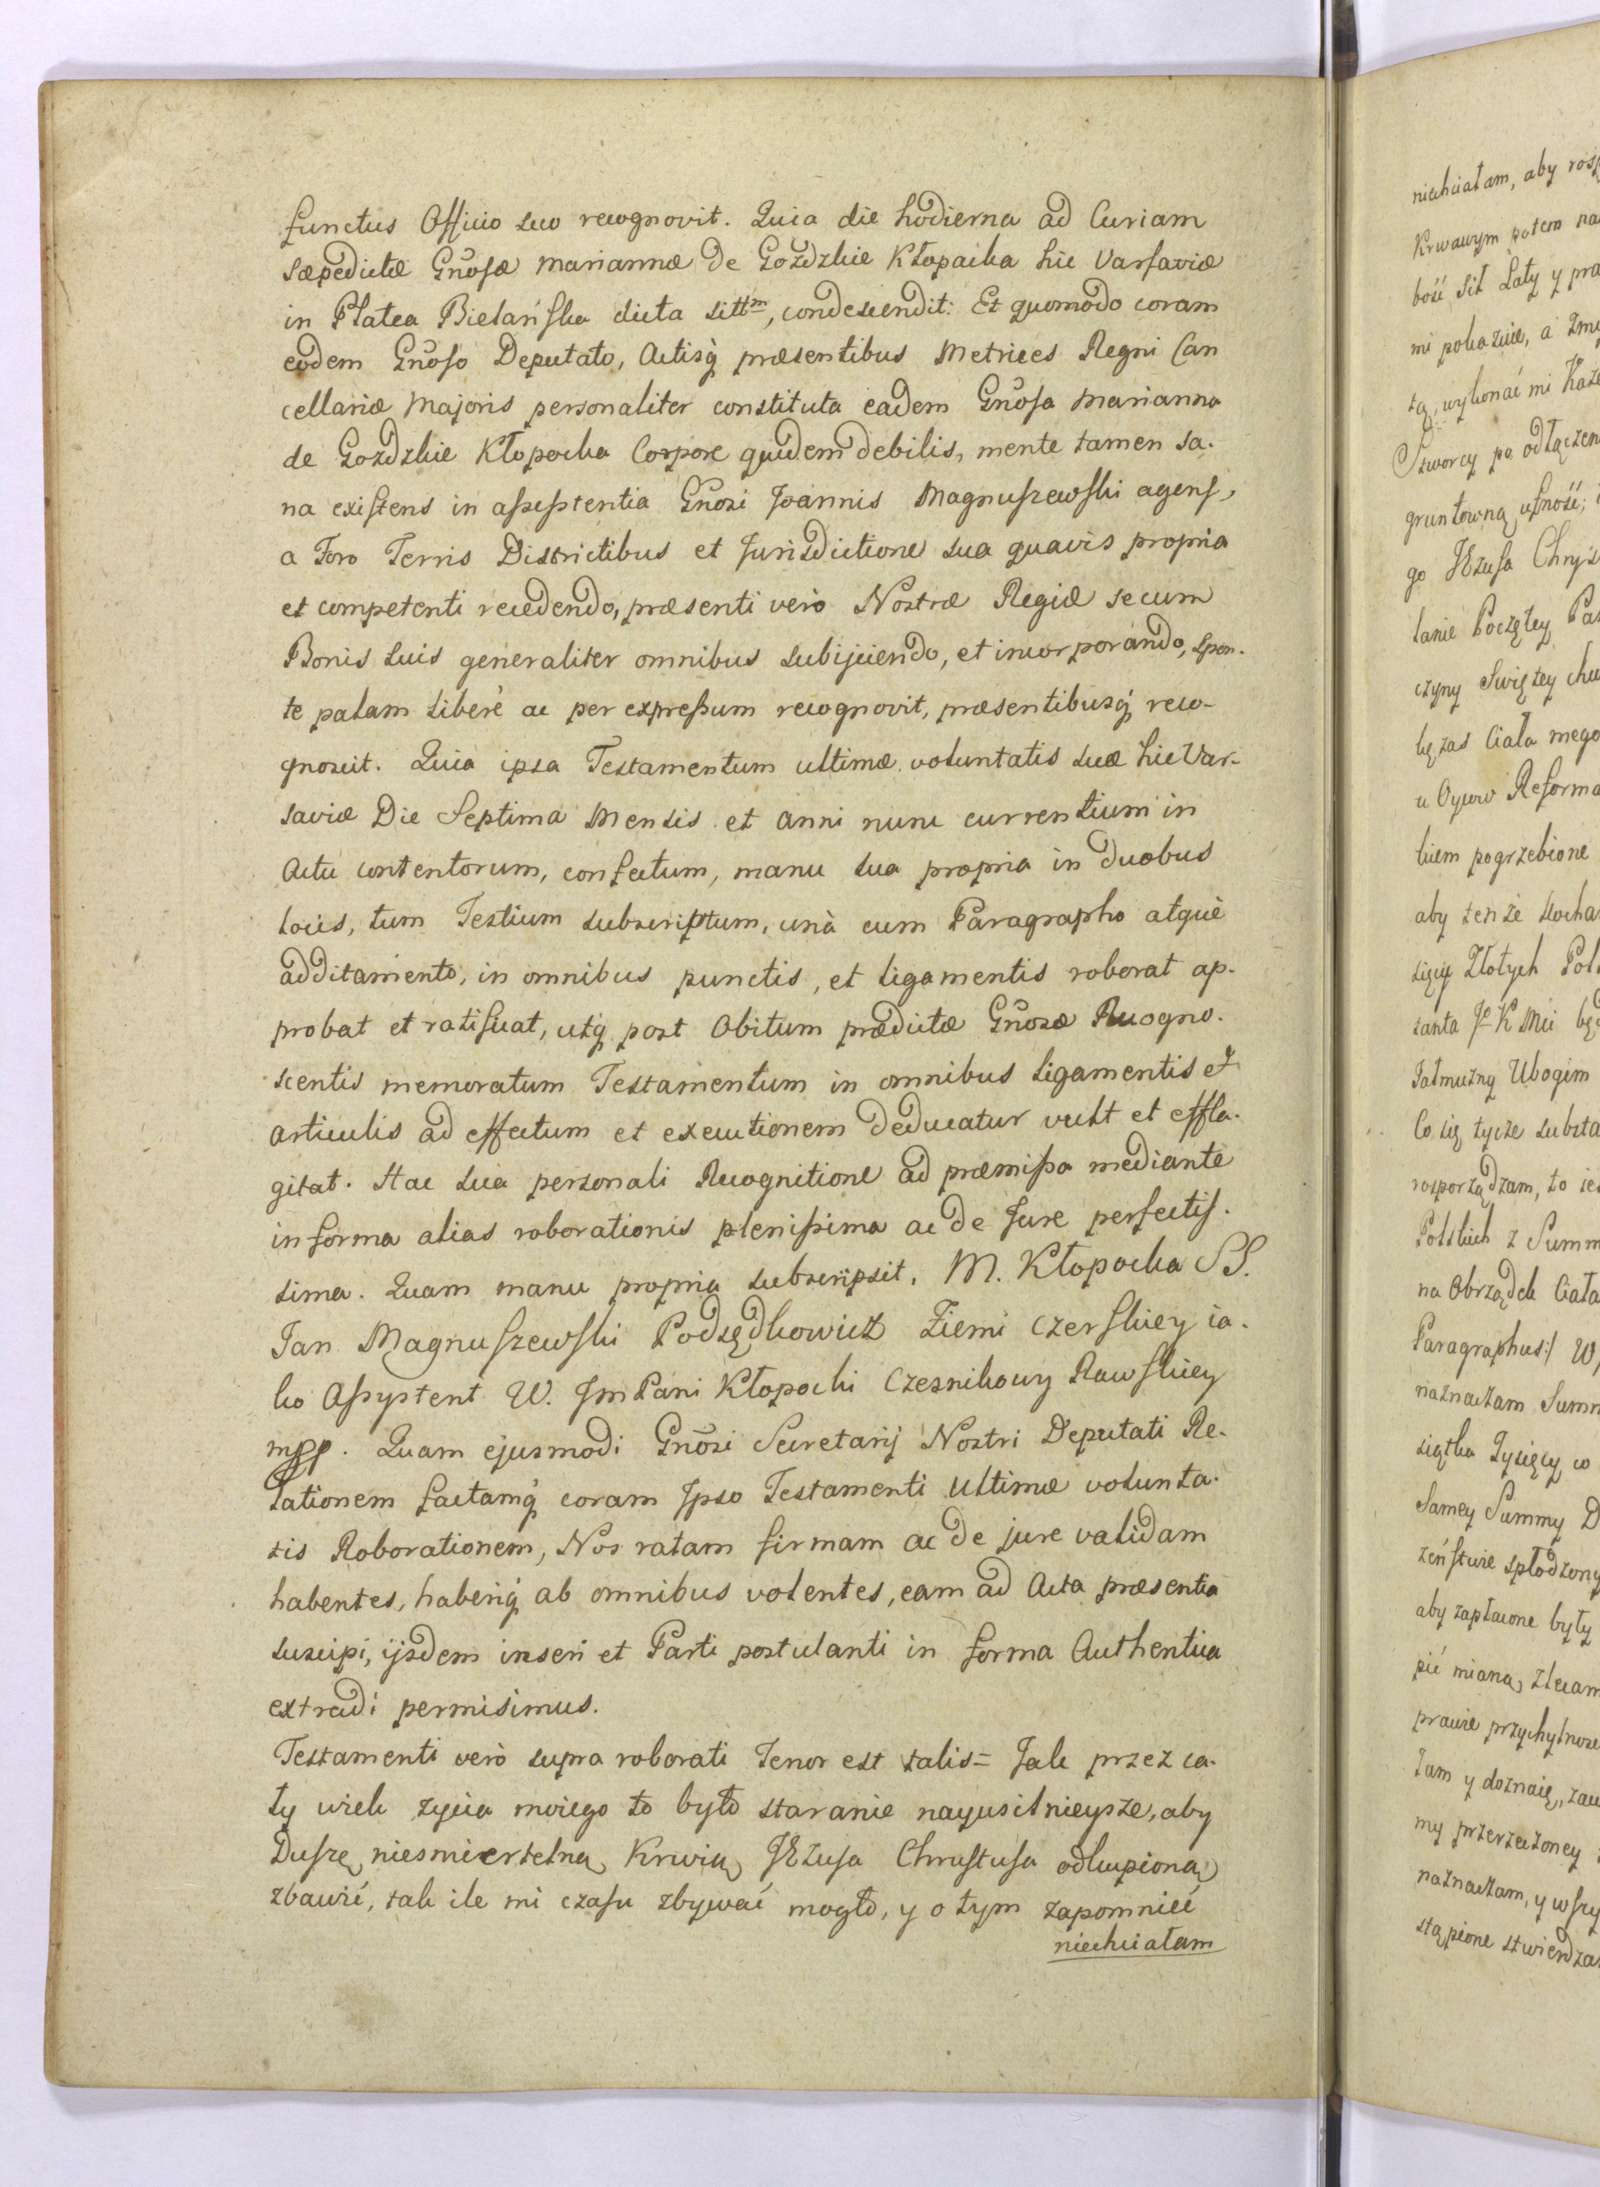 functus Officio suo recognovit. Quia die hodierna ad Curiam
sæpedictæ Gnõsæ Mariannæ de Gozdzkie Kłopacka hic Varsaviæ
in Platea Bielańska dicta sittm, condescendit: Et quomodo coram
eodem Gnõso Deputato, Actisq́ præsentibus Metrices Regni Can
cellariæ Majoris personaliter constituta eadem Gnõsa Marianna
de Gozdzkie Kłopocka Corpore quidem debilis, mente tamen sa-
na existens in assistentia Gnõsi Joannis Magnuszewski agens,
a Foro Terris Districtibus et Jurisdictione sua quavis propria
et competenti recedendo, præsenti verò Nostræ Regiæ se cum
Bonis suis generaliter omnibus subijciendo, et incorporando, spon-
te palam liberè ac per expressum recognovit, præsentibusq́ reco-
gnoscit. Quia ipsa Testamentum ultimæ voluntatis suæ hic Var-
saviæ Die Septima Mensis et anni nunc currentium in
Actu contentorum, confectum, manu sua propria in duobus
locis, tum Testium subscriptum, unà cum Paragrapho atquè
additamento, in omnibus punctis, et ligamentis roborat ap-
probat et ratificat, utq́ post Obitum prædictæ Gnõsæ Recogno-
scentis memoratum Testamentum in omnibus ligamentis et
articulis ad effectum et executionem deducatur vult et effla-
gitat. Hac sua personali Recognitione ad præmissa mediante
in forma alias roborationis plenissima ac de Jure perfectis-
sima. Quam manu propria subscripsit. M. Kłopocka SS.
Jan Magnuszewski Podsędkowicz Ziemi Czerskiey ia-
ko Assystent W. Jm Pani Kłopocki Czesnikowy Rawskiey
mpp. Quam ejusmodi Gnõsi Secretarij Nostri Deputati Re-
lationem factamq́ coram Ipso Testamenti Ultimæ volunta-
tis Roborationem, Nos ratam firmam ac de jure validam
habentes, haberiq́ ab omnibus volentes, eam ad Acta præsentia
suscipi, ijsdem inseri et Parti postulanti in forma Authentica
extradi permisimus.
Testamenti verò supra roborati Tenor est talis= Jak przez ca-
ły wiek zycia moiego to było staranie nayusilnieysze, aby
Duszę niesmiertelną Krwią JEzusa Chrustusa odkupioną
zbawić, tak ile mi czasu zbywać mogło, y o tym zapomnieć
niechciałam
niechciałam, aby
Krwawym potem
bość sił Laty y
mi pokazuie, a
wykonać mi
Stworcy po
gruntowną ufność;
go JEzusa
łanie Poczętey
czyny Swiętey
Ciała mego
u Oycow
kiem pogrzebione
aby tenże
Złotych
Jałmuzny Ubogim
Co się tycze
rosporządzam, to
Polskich z
na Obrządek Ciała
Paragraphus:/
naznaczam
Tysięcy
Samey Summy
spłodzony
aby zapłacone były
mianą, zlecam
prawie
Tam y doznaię,
my przerzeczoney
naznaczam, y